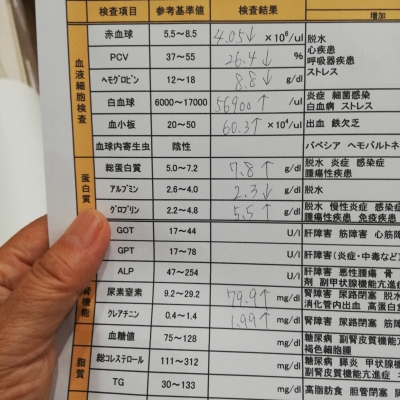 検査項目 参考基準値 検査結果 増加
血液細胞検査
赤血球 5.5~8.5 4.05↓ ×10⁶/ul 脱水
PCV 37~55 26.4↓ % 心疾患
呼吸器疾患
ヘモグロビン 12~18 8.8↓ g/dl ストレス
白血球 6000~17000 56900↑ /ul 炎症 細菌感染
白血病 ストレス
血小板 20~50 60.3↑ ×10⁴/ul 出血 鉄欠乏
血球内寄生虫 陰性 バベシア ヘモバルトネ
蛋白質
総蛋白質 5.0~7.2 7.8↑ g/dl 脱水 炎症 感染症
腫瘍性疾患
アルブミン 2.6~4.0 2.3↓ g/dl 脱水
グロブリン 2.2~4.8 5.5↑ g/dl 脱水 慢性炎症 感染症
腫瘍性疾患 免疫疾患
GOT 17~44 U/l 肝障害 筋障害 心筋障
GPT 17~78 U/l 肝障害(炎症・中毒など)
ALP 47~254 U/l 肝障害 悪性腫瘍 骨
剤 副甲状腺機能亢進症
腎機能
尿素窒素 9.2~29.2 79.9↑ mg/dl 腎障害 尿路閉塞 脱水
消化管内出血 高蛋白食
クレアチニン 0.4~1.4 1.99↑ mg/dl 腎障害 尿路閉塞 筋障
血糖値 75~128 mg/dl 糖尿病 副腎皮質機能亢進
褐色細胞腫
脂質
総コレステロール 111~312 mg/dl 糖尿病 膵炎 甲状腺機
副腎皮質機能亢進症
TG 30~133 mg/dl 高脂肪食 胆管閉塞